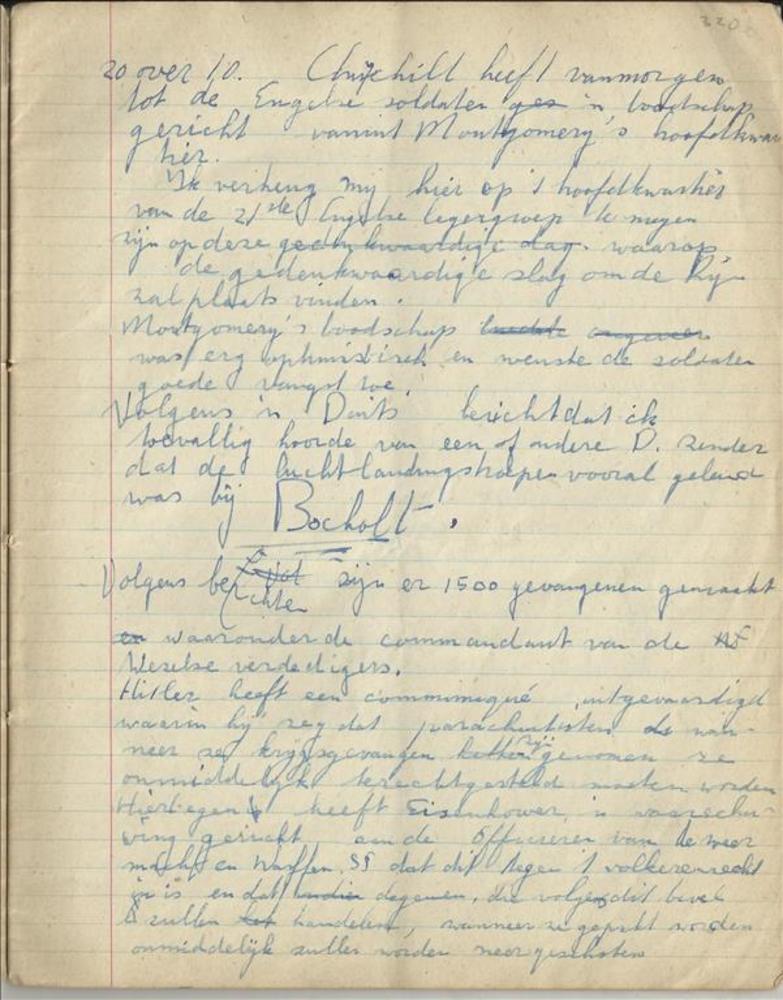 320
20 over 10. Churchill heeft vanmorgen
tot de Engelse soldaten ges 'n boodschap
gericht vanuit Montgomery's hoofdkwar
tier.
"Ik verheug mij hier op 't hoofdkwartier
van de 21ste Engelse legergroep te mogen
zijn op deze gedenkwaardige dag. waarop
de gedenkwaardige slag om de Rijn
zal plaats vinden.
Montgomery's boodschap luidde ongeveer
was erg optimistisch en wenste de soldaten
goede vangst toe.
Volgens 'n Duits bericht dat ik
toevallig hoorde van een of andere D. zender
dat de luchtlandingstroepen vooral geland
was bij Bocholt.
Volgens berichten zijn er 1500 gevangenen gemaakt
en waaronder de commandant van de
Weselse verdedigers.
Hitler heeft een communiqué uitgevaardigd
waarin hij zeg dat parachutisten de wan-
neer ze krijgsgevangen zijn genomen ze
onmiddelijk terechtgesteld moeten worden
Hiertegen heeft Eisenhower 'n waarschu-
wing gericht aan de Officieren van de weer
macht en Waffen SS dat dit tegen 't volkerenrecht
in is en dat indien degenen, die volgens dit bevel
zullen handelen, wanneer ze gepakt worden
onmiddelijk zullen worden neergeschoten